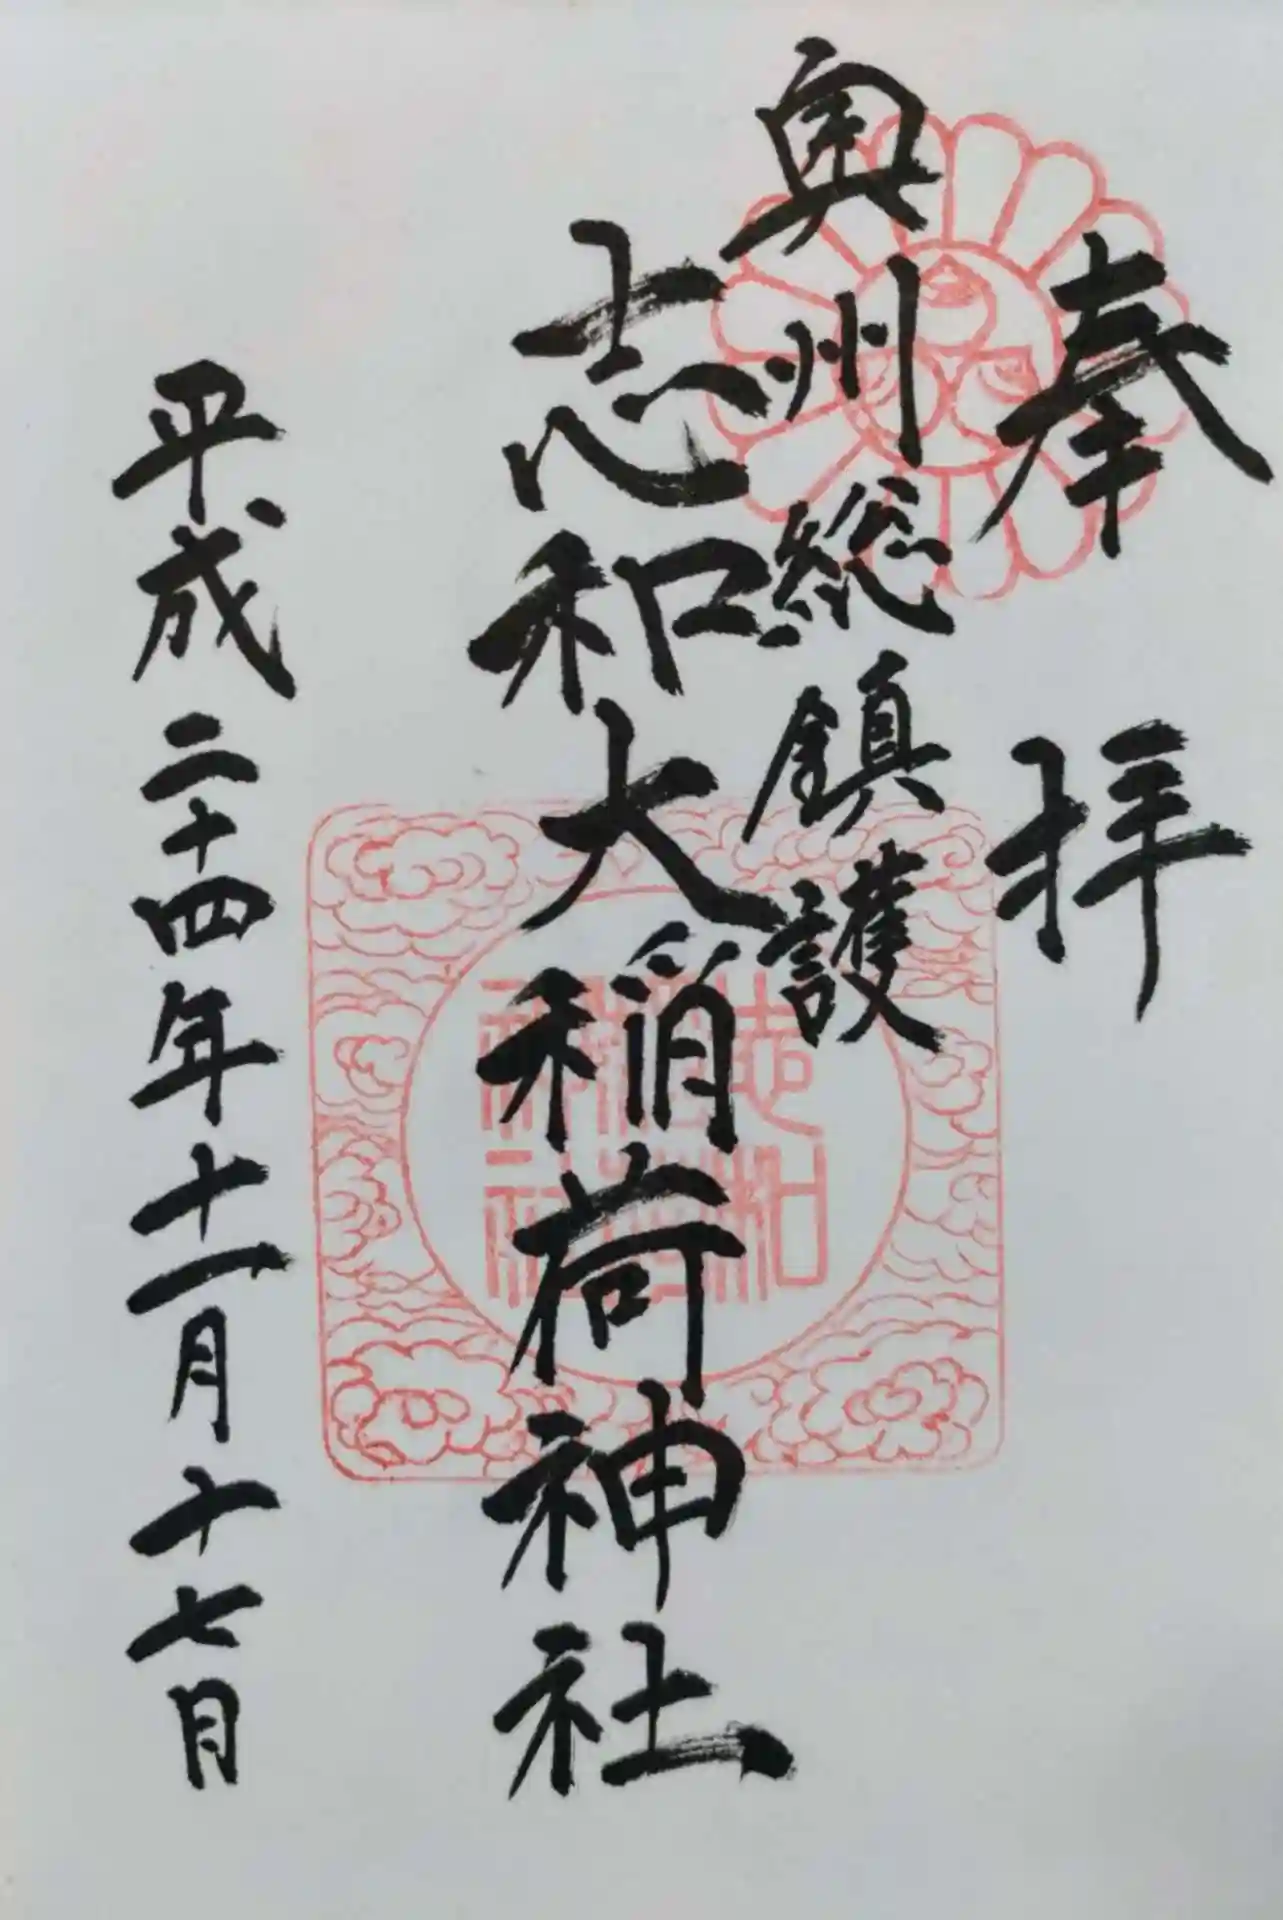 奉拝
奥州総鎮護
志和大稲荷神社
平成二十四年十一月十七日
志和
稲荷
神社